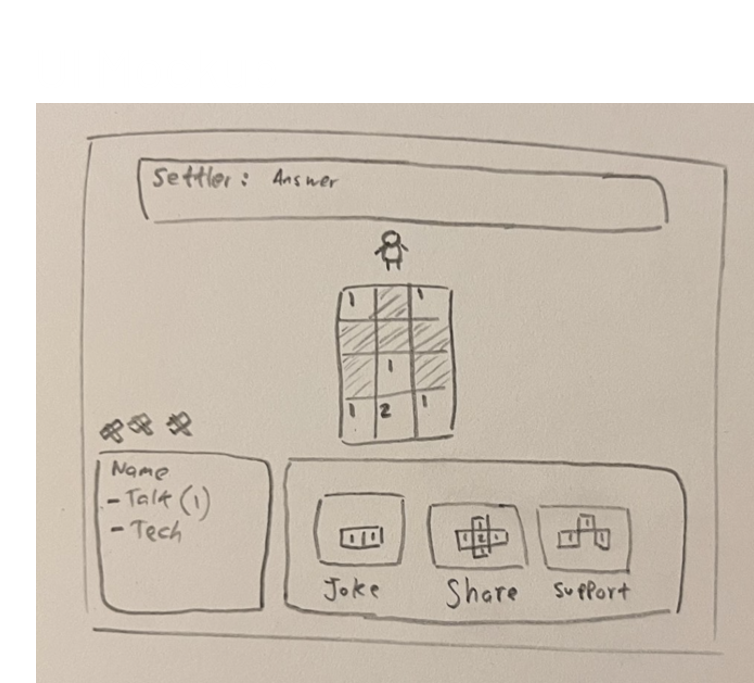 Settler: Answer
1 1
1
1 2 1
Name
- Talk (1)
- Tech
1 1 1
1
1 2 1
1
1
1 1
Joke Share Support